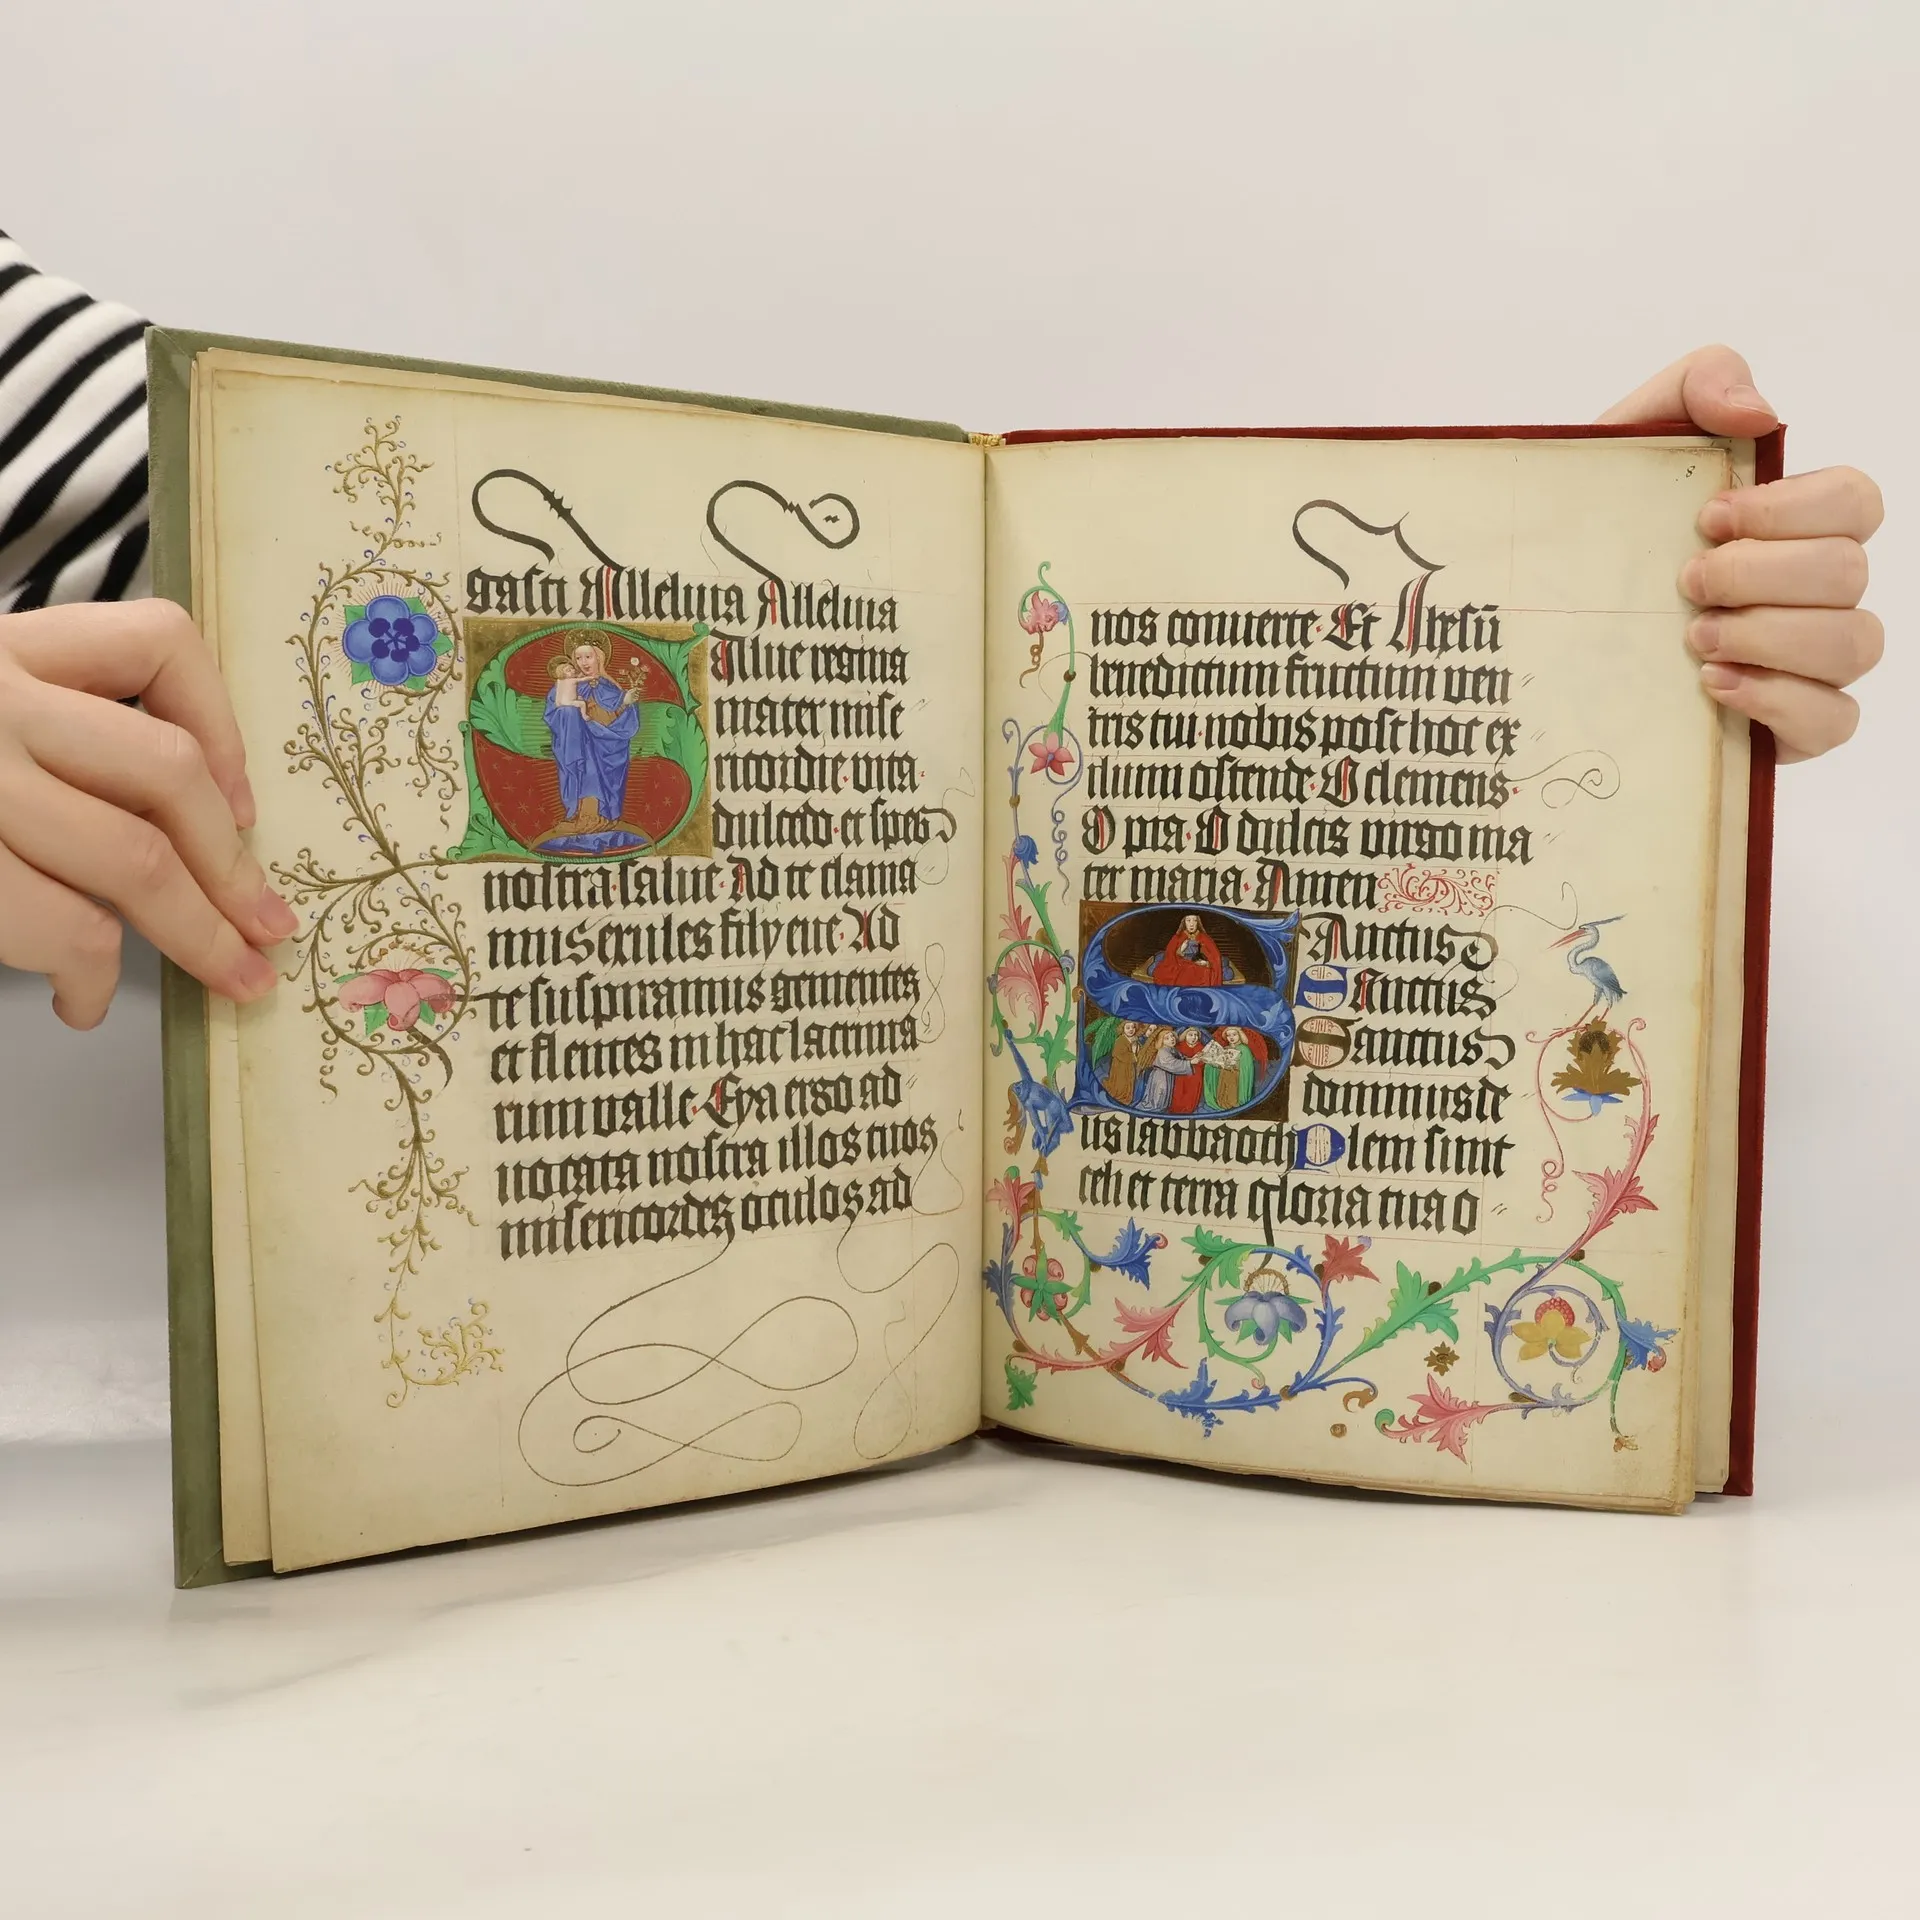 gasti Alleluia Alleluia
Alue regina
mater mise
ricordie·vita·
dulcedo·et spes
nostra·salue·Ad te clama
mus exules filÿ eue·Ad
te suspiramus gementes
et flentes in hac lacrima
rum valle·Eya ergo ad
uocata nostra illos tuos
misericordes oculos ad
8
nos conuerte·Et Ihesū
benedictum fructum ven
tris tui·nobis post hoc ex
ilium ostende·O clemens·
O pia·O dulcis virgo ma
ter maria·Amen
Anctus
Sanctus
Sanctus
dominus de
us sabbaoth Pleni sunt
celi et terra gloria tua o